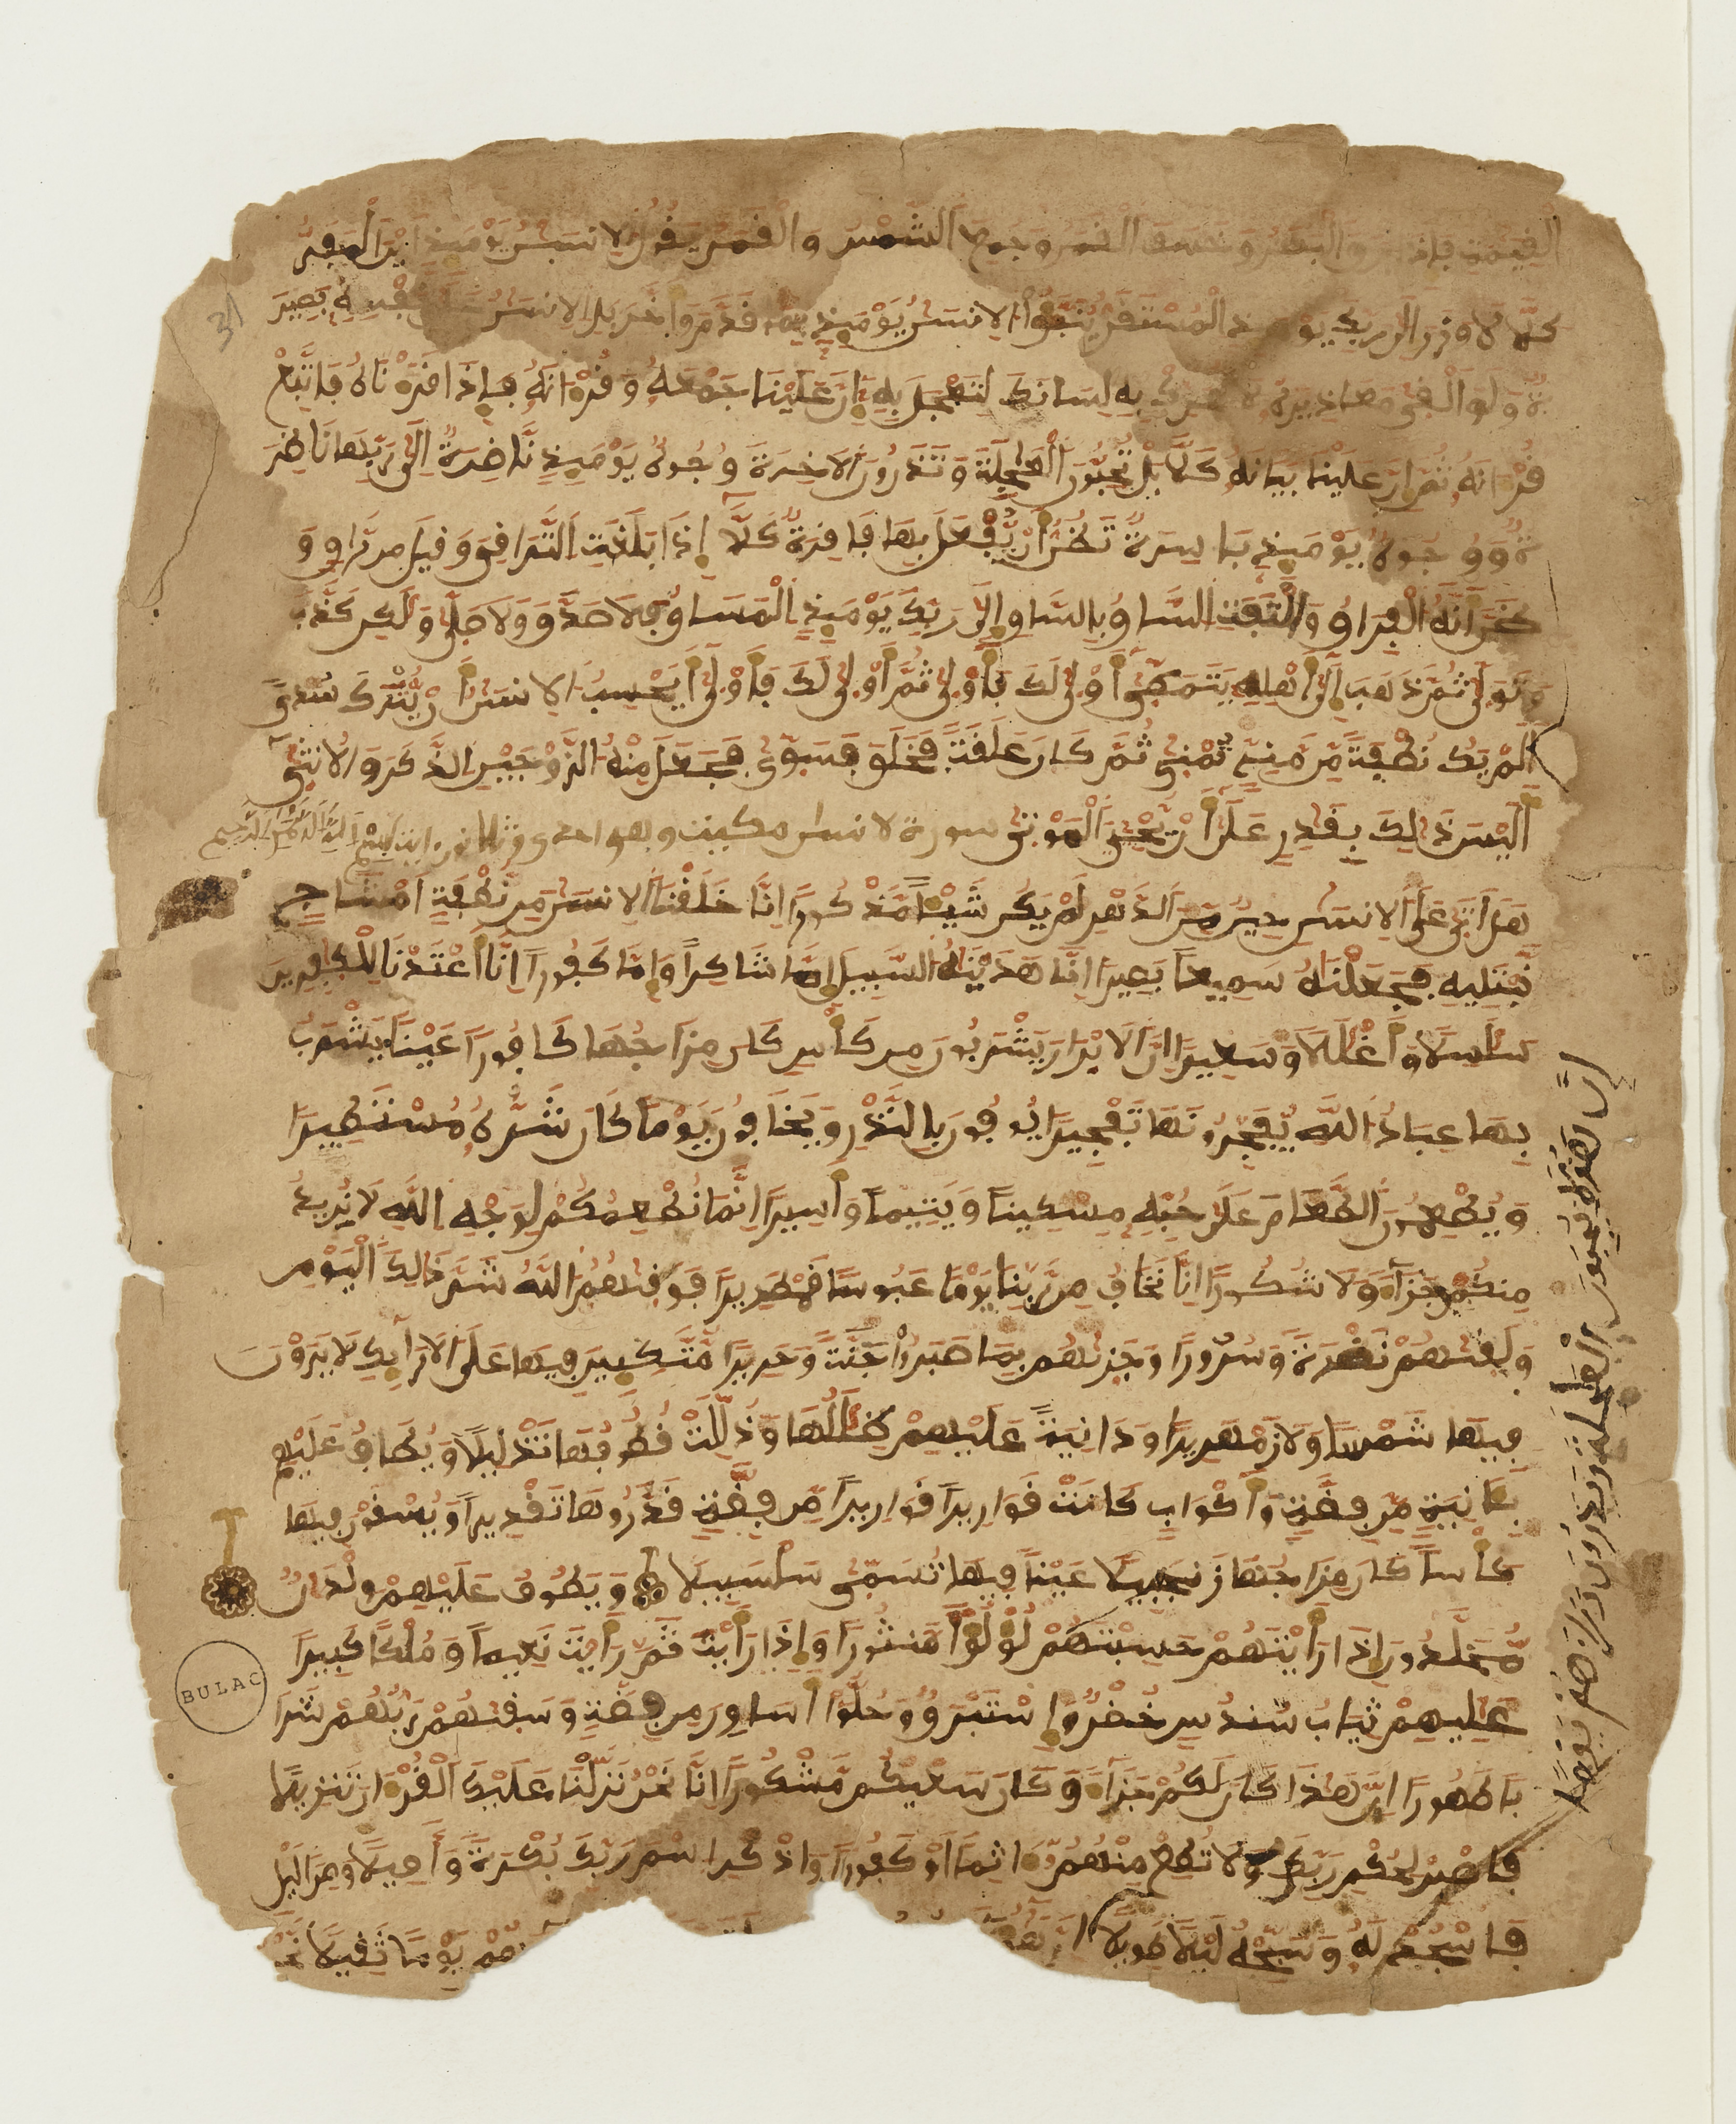 القيمة فإذا برق البصر وخسف القمر وجمع الشمس والقمر يقول الانسن يومئذ اين المفر
كلا لا وزر الى ربك يومئذ المستقر ينبؤا الانسن يومئذ بما قدم واخر بل الانسن على نفسه بصير
ة ولو القى معاذيره لا تحرك به لسانك لتعجل به إن علينا جمعه وقرءانه فإذا قرأناه فاتبع
قرءانه ثم إن علينا بيانه كلا بل تحبون العجلة وتذرون الاخرة وجوه يومئذ ناضرة الى ربها ناظر
ة ووجوه يومئذ باسرة تظن أن يفعل بها فاقرة كلا إذا بلغت التراقي وقيل من راق و
ظن أنه الفراق والتفت الساق بالساق إلى ربك يومئذ المساق فلا صدق ولا صلى ولكن كذب
وتولى ثم ذهب إلى أهله يتمطى أولى لك فأولى ثم أولى لك فأولى أيحسب الانسن أن يترك سدى
ألم يك نطفة من مني تمنى ثم كان علقة فخلق فسوى فجعل منه الزوجين الذكر والانثى
أليس ذلك بقدر على أن يحيي الموتى سورة لانسان مكية وهي احدى وثلاثون اية بسم الله الرحمن الرحيم
هل أتى على الانسن حين من الدهر لم يكن شيئا مذكورا إنا خلقنا الانسن من نطفة امشاج
نبتليه فجعلناه سميعا بصيرا انا هدينه السبيل إما شاكرا وإما كفورا انا أعتدنا للكفرين
سلسلا وأغللا وسعيرا ان الابرار يشربون من كأس كان مزاجها كافورا عينا يشرب
بها عباد الله يفجرونها تفجيرا يوفون بالنذر ويخافون يوما كان شره مستطيرا
ويطعمون الطعام على حبه مسكينا ويتيما وأسيرا انما نطعمكم لوجه الله لا نريد
منكم جزاء ولا شكورا انا نخاف من ربنا يوما عبوسا قمطريرا فوقىهم الله شر ذلك اليوم
ولقىهم نضرة وسرورا وجزىهم بما صبروا جنة وحريرا متكئين فيها على الارائك لا يرون
فيها شمسا ولا زمهريرا ودانية عليهم ظللها وذللت قطوفها تذليلا ويطاف عليهم
بئانية من فضة وأكواب كانت قواريرا قواريرا من فضة قدروها تقديرا ويسقون فيها
كأسا كان مزاجها زنجبيلا عينا فيها تسمى سلسبيلا ويطوف عليهم ولدان
مخلدون إذا رأيتهم حسبتهم لؤلؤا منثورا وإذا رأيت ثم رأيت نعيما وملكا كبيرا
عليهم ثياب سندس خضر وإستبرق وحلوا أساور من فضة وسقىهم ربهم شرا
با طهورا ان هذا كان لكم جزاء وكان سعيكم مشكورا انا نحن نزلنا عليك القرءان تنزيلا
فاصبر لحكم ربك ولا تطع منهم ءاثما أو كفورا واذكر اسم ربك بكرة وأصيلا ومن اليل
فاسجد له وسبحه ليلا طويلا ان هؤلاء يوما ثقيلا نحن
ان هؤلاء يحبون العاجلة ويذرون وراءهم يوما
31
BULAC